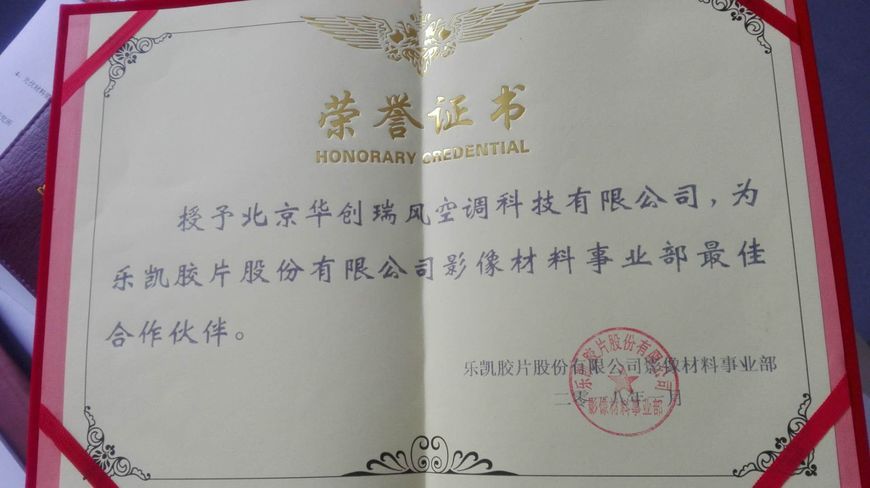 荣誉证书
HONORARY CREDENTIAL
授予北京华创瑞风空调科技有限公司，为
乐凯胶片股份有限公司影像材料事业部最佳
合作伙伴。
乐凯胶片股份有限公司影像材料事业部
二零一八年一月
乐凯胶片股份有限公司
影像材料事业部